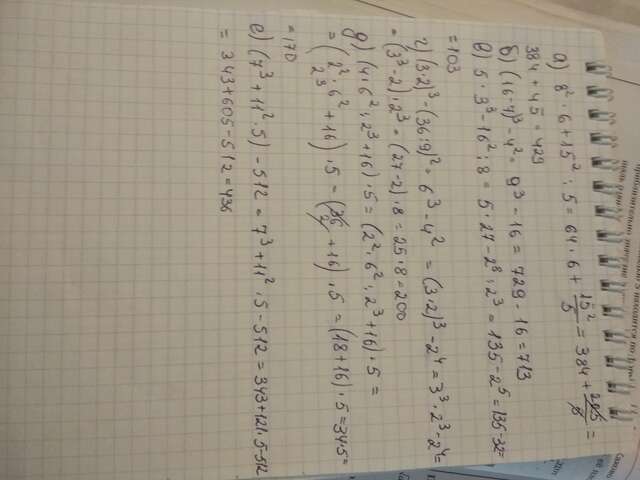 а) 8² · 6 + 15² : 5 = 64 · 6 + 15²/5 = 384 + 225/5 =
384 + 45 = 429
б) (16-7)³ - 4² = 9³ - 16 = 729 - 16 = 713
в) 5 · 3³ - 16² : 8 = 5 · 27 - 2⁸ : 2³ = 135 - 2⁵ = 135-32=
= 103
г) (3·2)³ - (36:9)² = 6³ - 4² = (3·2)³ - 2⁴ = 3³·2³-2⁴=
= (3³-2)·2³ = (27-2)·8 = 25·8 = 200
д) (4·6² : 2³ + 16) · 5 = (2²·6² : 2³ + 16) · 5 =
= (2²·6²/2³ + 16) · 5 = (36/2 + 16) · 5 = (18+16) · 5 = 34·5 =
= 170
е) (7³ + 11² · 5) - 512 = 7³ + 11² · 5 - 512 = 343 + 121·5-512
= 343 + 605 - 512 = 436